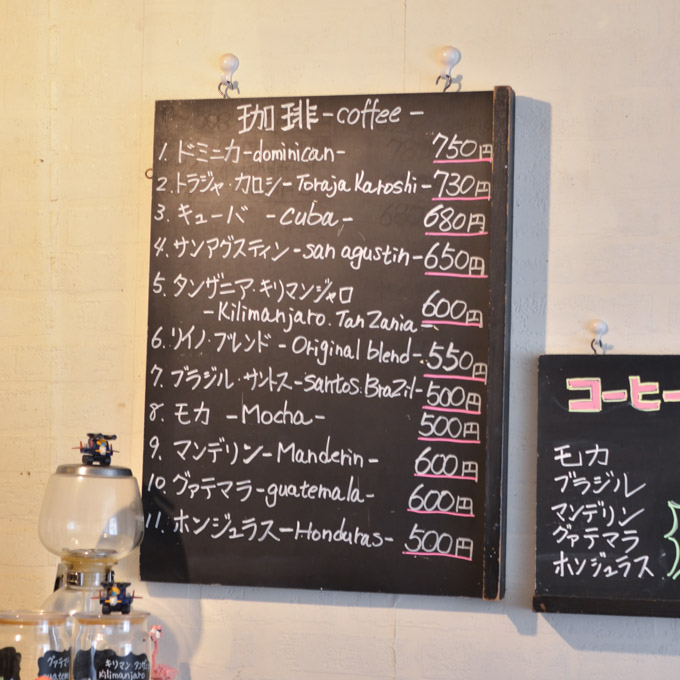 珈琲-coffee-
1. ドミニカ-dominican- 750円
2. トラジャ・カロシ-Toraja Karoshi- 730円
3. キューバ -cuba- 680円
4. サンアグスティン-san agustin- 650円
5. タンザニア・キリマンジャロ
-Kilimanjaro.TanZania- 600円
6. リイノ・ブレンド-Original blend- 550円
7. ブラジル・サントス-santos.Brazil- 500円
8. モカ -Mocha- 500円
9. マンデリン-Manderin- 600円
10 グァテマラ-guatemala- 600円
11. ホンジュラス-Honduras- 500円
コーヒー
モカ
ブラジル
マンデリン
グァテマラ
ホンジュラス
グァテマ
guatem
キリマン
Kilimanjaro